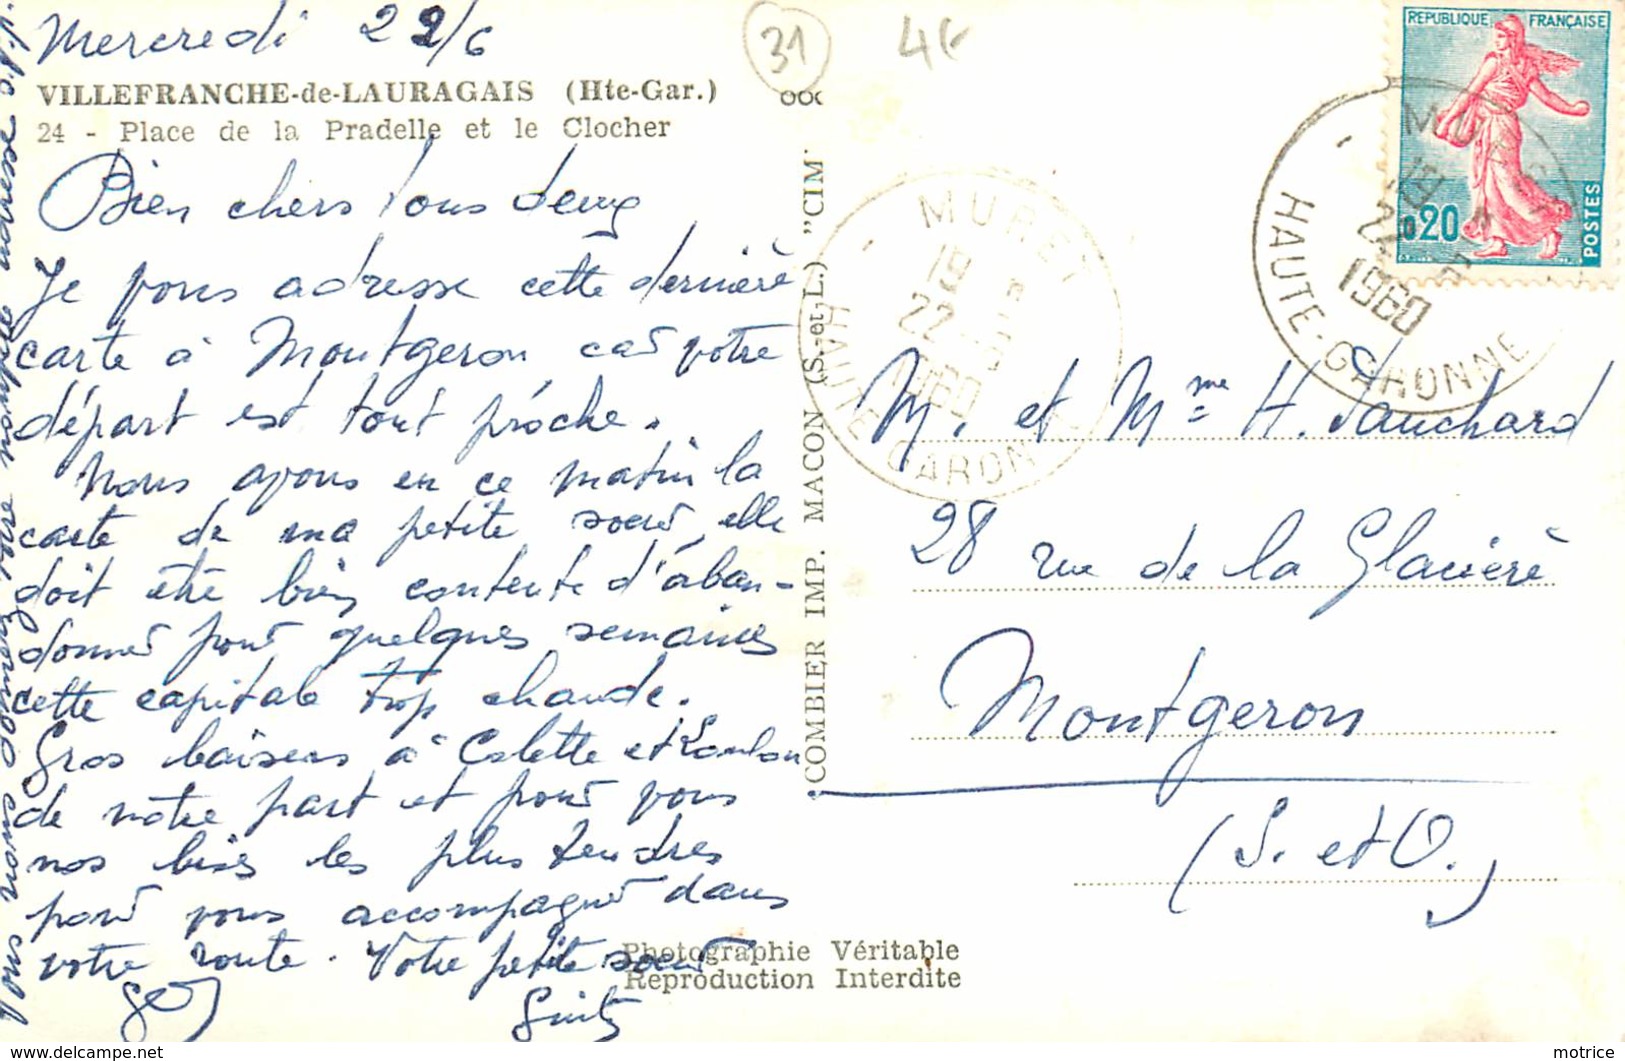 Mercredi 22/6
31
VILLEFRANCHE-de-LAURAGAIS (Hte-Gar.)
24 - Place de la Pradelle et le Clocher
Bien chers tous deux
Je vous adresse cette dernière
carte à Montgeron car votre
départ est tout proche.
Nous avons eu ce matin la
carte de ma petite soeur, elle
doit être bien contente d'aban-
donner pour quelques semaines
cette capitale trop chaude.
Gros baisers à Colette et Loulou
de notre part et pour vous
nos bises les plus tendres
pour vous accompagner dans
votre route. Votre petite soeur
Vous nous donnerez votre nouvelle adresse S.V.P.
COMBIER IMP. MACON (S.-et-L.) "CIM"
Photographie Véritable
Reproduction Interdite
REPUBLIQUE FRANÇAISE
0,20
POSTES
MURET
19
22
1960
HAUTE-GARONNE
MURET
19
22
1960
HAUTE-GARONNE
M. et Mme H. Fauchard
28 rue de la Glacière
Montgeron
(S. et O.)
https://www.delcampe.net
motrice